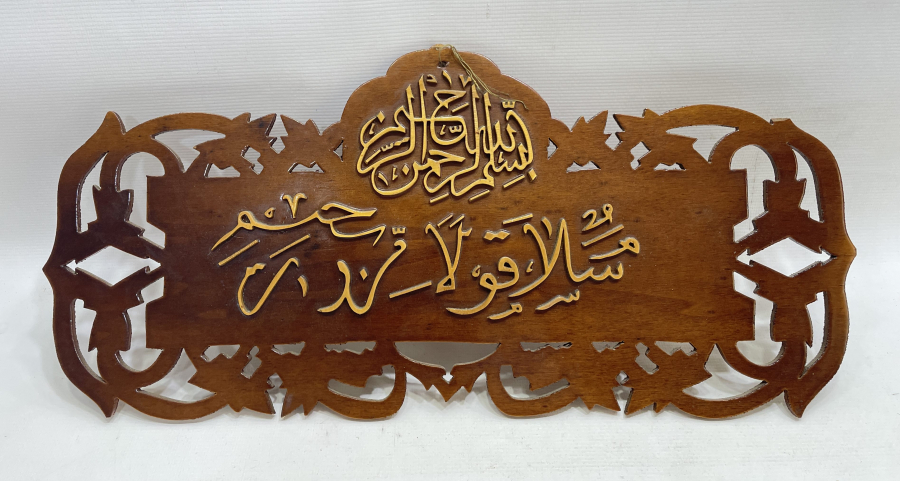 بسم الله الرحمن الرحيم
سلام قولا من رب رحيم